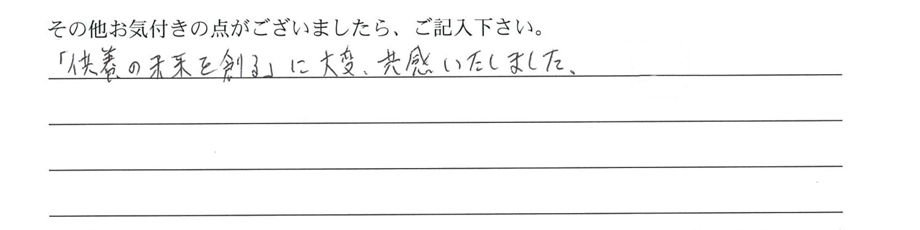 その他お気付きの点がございましたら、ご記入下さい。
「供養の未来を創る」に大変、共感いたしました、